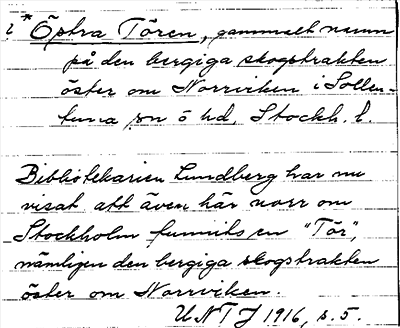 i * Öptra Tören, gammalt namn
på den bergiga skogstrakten
öster om Norrviken i Sollen-
tuna sn o hd, Stockh. l.
Bibliotekarien Lundberg har nu
visat att även här norr om
Stockholm funnits en "Tör",
nämligen den bergiga skogstrakten
öster om Norrviken.
UNTJ 1916, s. 5.